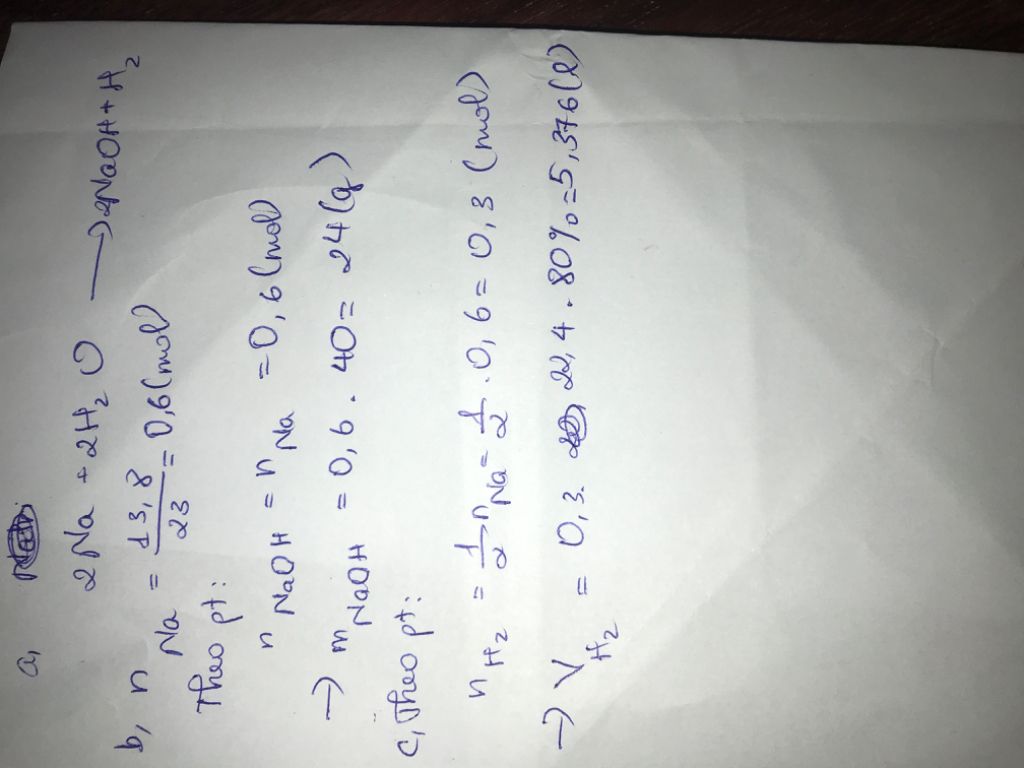 a,
2Na + 2H2O → 2NaOH + H2
b, nNa = 13,8/23 = 0,6 (mol)
Theo pt:
nNaOH = nNa = 0,6 (mol)
→ mNaOH = 0,6 . 40 = 24 (g)
c, Theo pt:
nH2 = 1/2 nNa = 1/2 . 0,6 = 0,3 (mol)
→ VH2 = 0,3 . 22,4 . 80% = 5,376 (l)